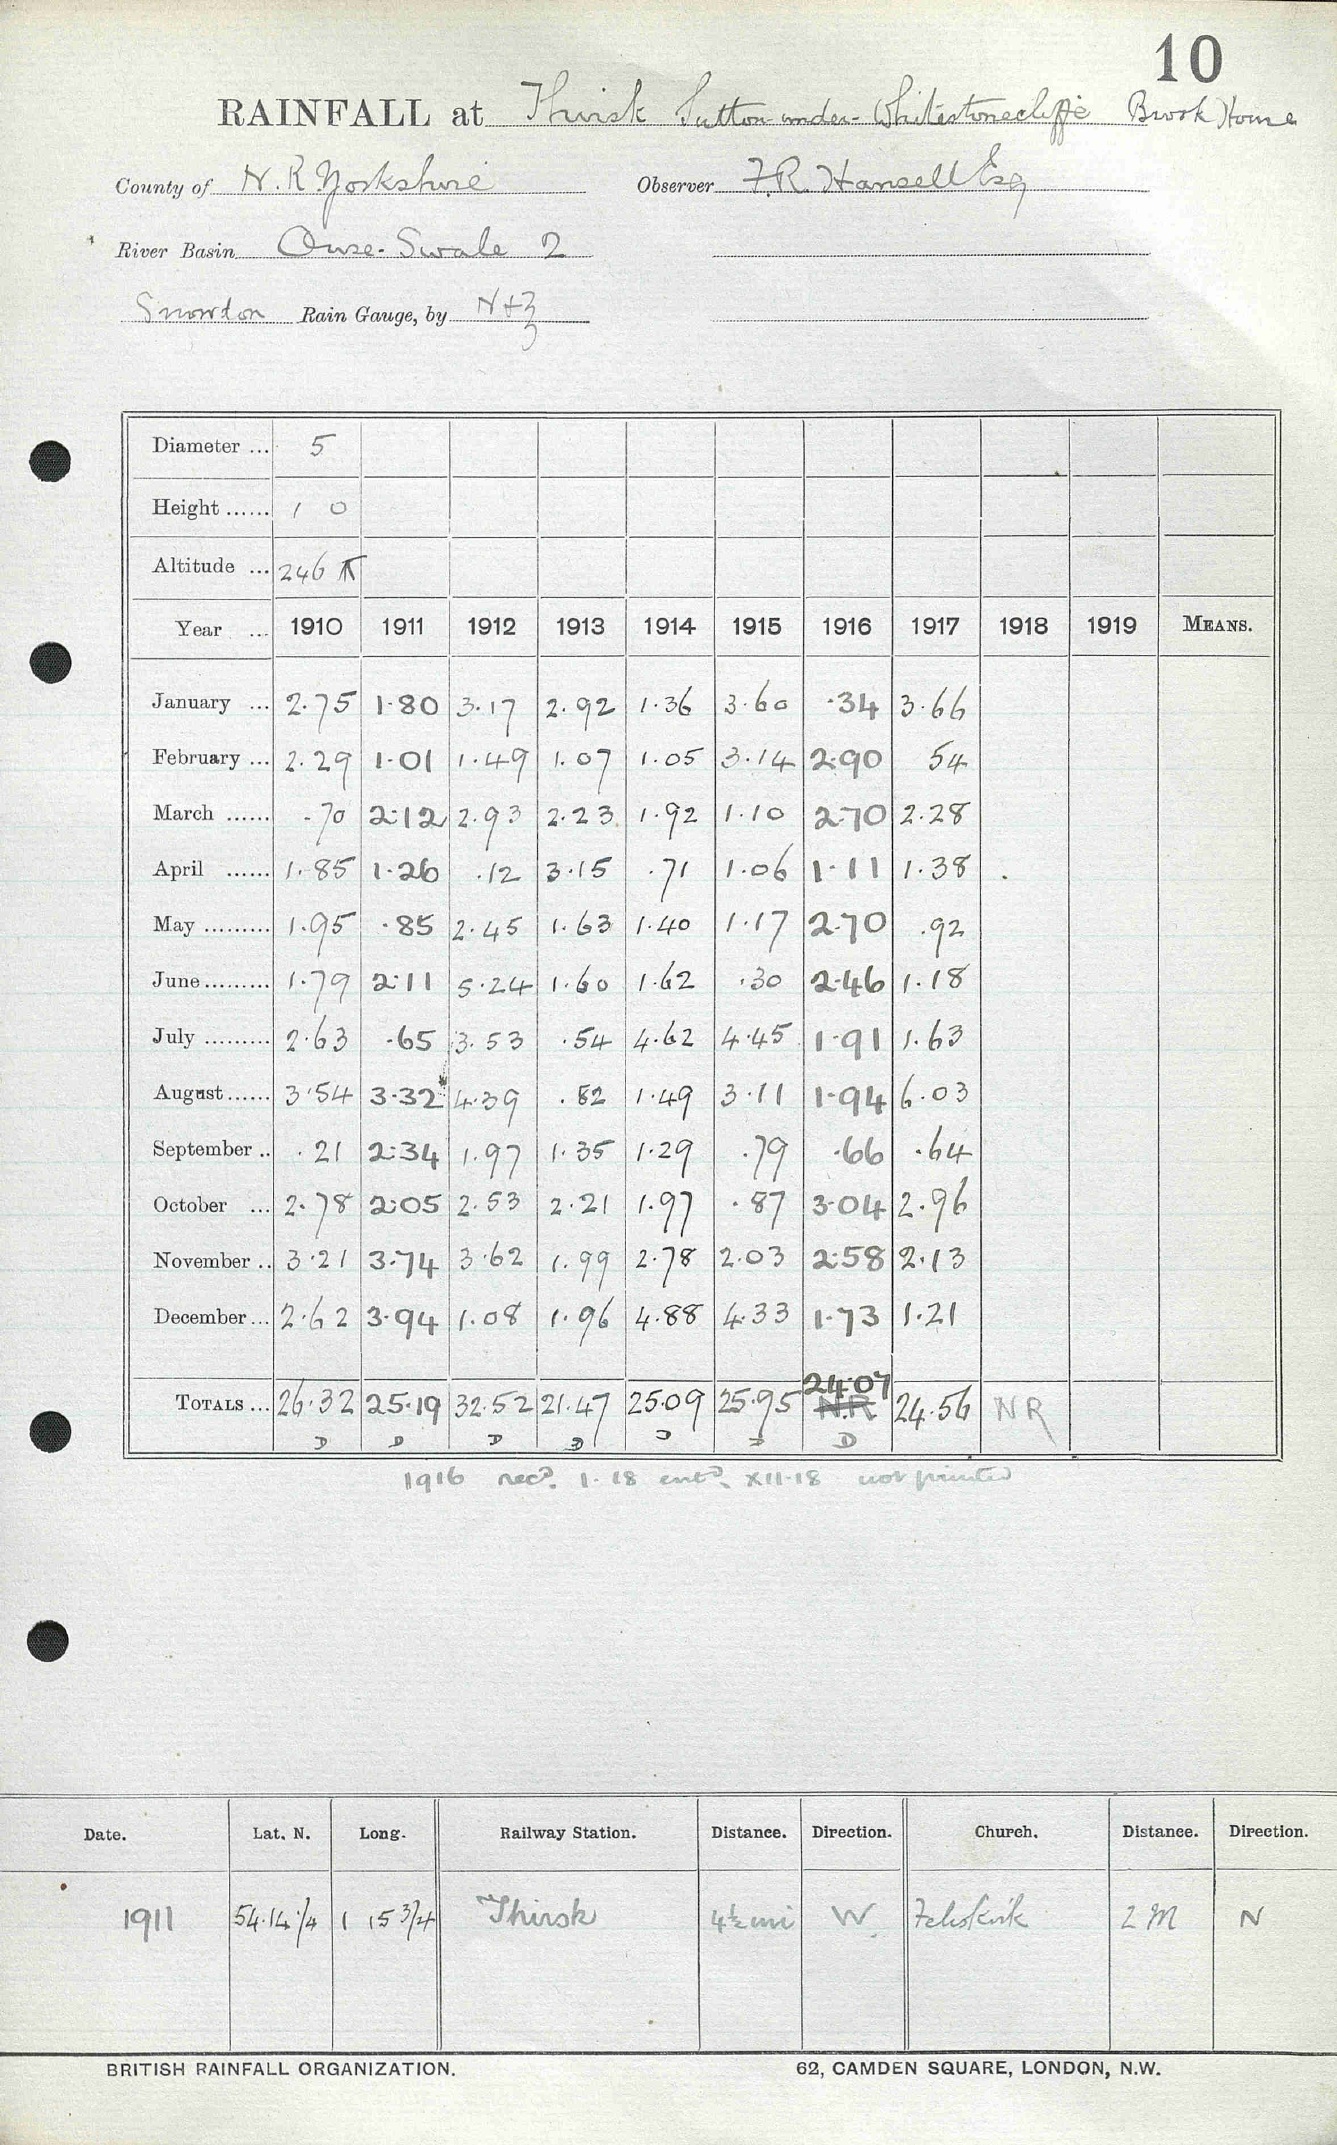 10
RAINFALL at Thirsk Sutton-under-Whitestonecliffe Brook House
County of N. R. Yorkshire Observer F.R. Hansell Esq
River Basin Ouse-Swale 2
Snowdon Rain Gauge, by N+Z
Diameter ... 5
Height ...... 1 0
Altitude ... 246 T
Year ... 1910 1911 1912 1913 1914 1915 1916 1917 1918 1919 MEANS.
January ... 2.75 1.80 3.17 2.92 1.36 3.60 .34 3.66
February ... 2.29 1.01 1.49 1.07 1.05 3.14 2.90 54
March ...... .70 2.12 2.93 2.23 1.92 1.10 2.70 2.28
April ...... 1.85 1.26 .12 3.15 .71 1.06 1.11 1.38
May ......... 1.95 .85 2.45 1.63 1.40 1.17 2.70 .92
June ......... 1.79 2.11 5.24 1.60 1.62 .30 2.46 1.18
July ......... 2.63 .65 3.53 .54 4.62 4.45 1.91 1.63
August ...... 3.54 3.32 4.39 .82 1.49 3.11 1.94 6.03
September .. .21 2.34 1.97 1.35 1.29 .79 .66 .64
October ... 2.78 2.05 2.53 2.21 1.97 .87 3.04 2.96
November .. 3.21 3.74 3.62 1.99 2.78 2.03 2.58 2.13
December ... 2.62 3.94 1.08 1.96 4.88 4.33 1.73 1.21
24.07
TOTALS ... 26.32 25.19 32.52 21.47 25.09 25.95 N.R 24.56 NR
D D D D D D D
1916 recd. 1.18 entd. XII.18 not printed
Date. Lat. N. Long. Railway Station. Distance. Direction. Church. Distance. Direction.
1911 54.14 1/4 1 15 3/4 Thirsk 4 1/2 mi W Feliskirk 2 M N
BRITISH RAINFALL ORGANIZATION. 62, CAMDEN SQUARE, LONDON, N.W.